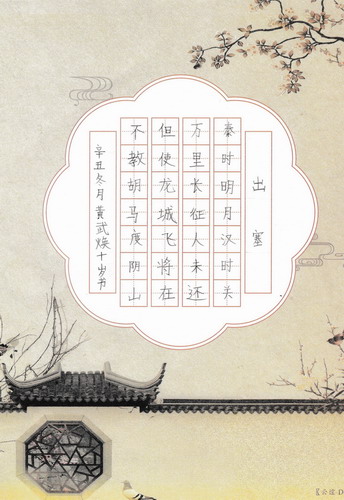 出塞
秦时明月汉时关
万里长征人未还
但使龙城飞将在
不教胡马度阴山
辛丑冬月黄武焕十岁书